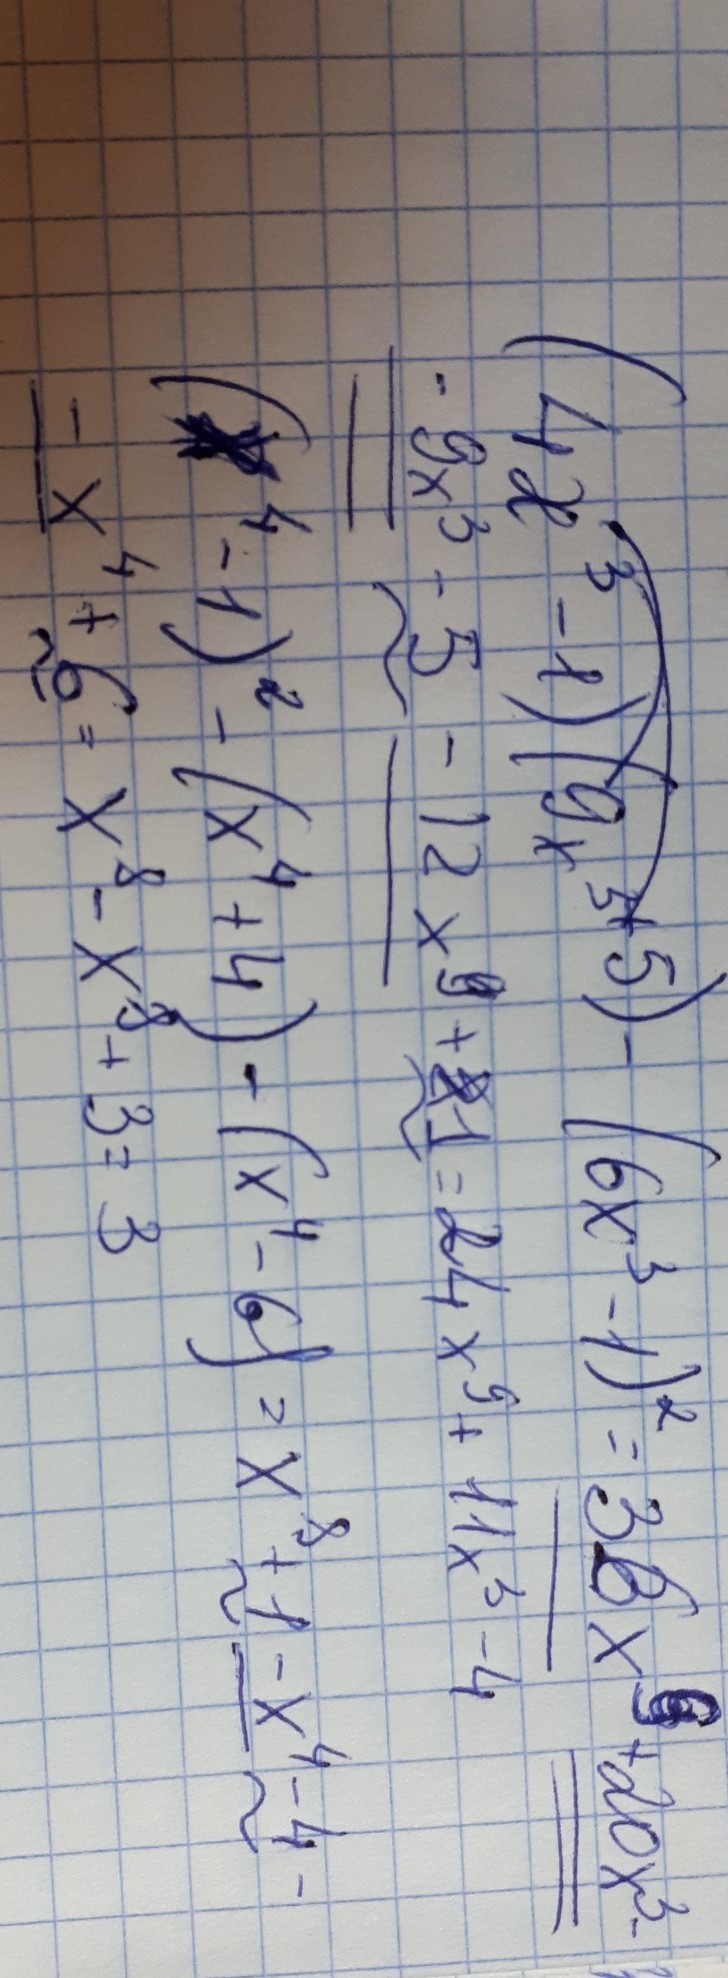 (4x³ - 1)(9x³ + 5) - (6x³ - 1)² = 36x⁶ + 20x³ -
- 9x³ - 5 - 12x⁹ + 1 = 24x⁹ + 11x³ - 4
( ⁴ - 1)² - (x⁴ + 4) - (x⁴ - 6) = x⁸ + 1 - x⁴ - 4 -
- x⁴ + 6 = x⁸ - x⁸ + 3 = 3